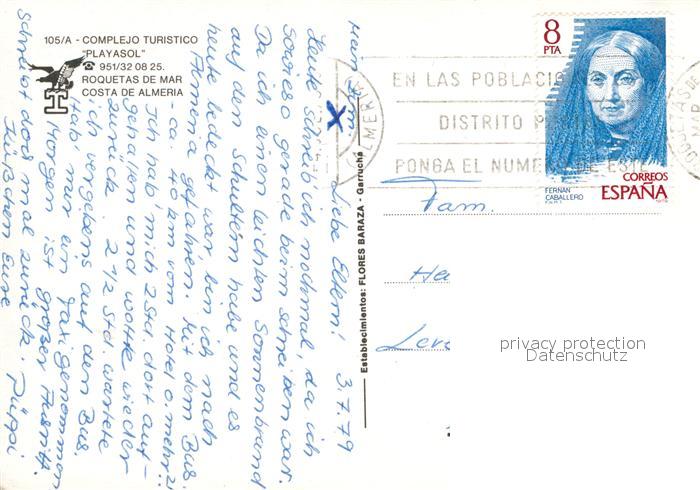 105/A - COMPLEJO TURISTICO
"PLAYASOL"
☎ 951/32 08 25.
ROQUETAS DE MAR
COSTA DE ALMERIA
T
8
PTA
CORREOS
ESPAÑA
FERNAN
CABALLERO
EN LAS POBLACIO
DISTRITO P
PONGA EL NUMERO DE ESTE
ALMERIA
Establecimientos: FLORES BARAZA - Garrucha
Liebe Eltern! 3.7.79
Heute schreib ich nochmal, da ich
sowieso gerade beim schreiben war.
Da ich einen leichten Sonnenbrand
auf den Schultern habe und es
heute bedeckt war, bin ich nach
Almeria gefahren. Mit dem Bus.
ca. 40 km vom Hotel o. mehr?!
Ich hab' mich 2 Std. dort auf-
gehalten und wollte wieder
zurück. 2 1/2 Std. wartete
ich vergebens auf den Bus.
Hab' mir ein Taxi genommen
Morgen ist großer
Schreibt doch mal zurück.
Tüßchen Eure
Fam.
He
Lev
privacy protection
Datenschutz